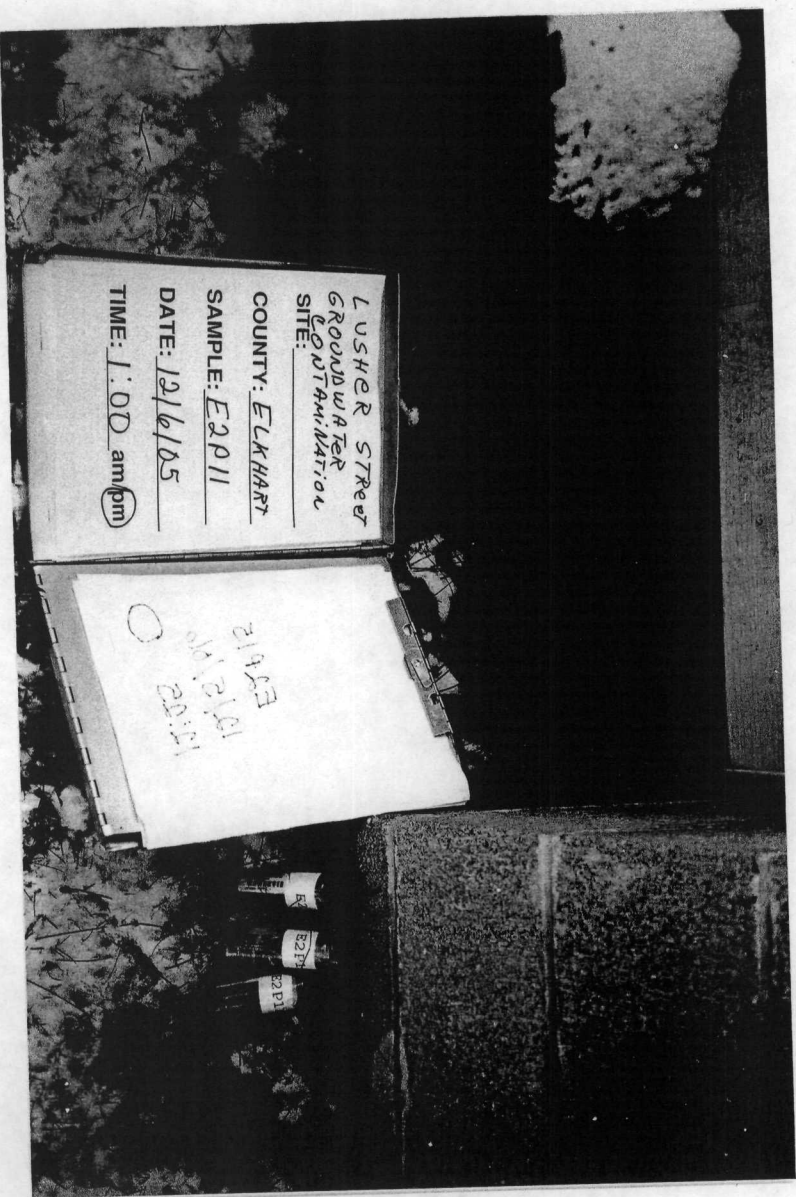 LUSHER STREET
GROUNDWATER
CONTAMINATION
SITE:
COUNTY: ELKHART
SAMPLE: E2P11
DATE: 12/6/05
TIME: 1:00 am/pm
E2P1
E2P1